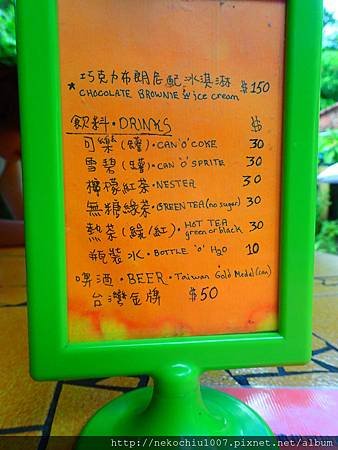 *巧克力布朗尼配冰淇淋 $150
CHOCOLATE BROWNIE w/ ice cream
飲料·DRINKS $
可樂(罐)·CAN 'O' COKE 30
雪碧(罐)·CAN 'O' SPRITE 30
檸檬紅茶·NESTEA 30
無糖綠茶·GREEN TEA (no sugar) 30
熱茶(綠/紅)·HOT TEA green or black 30
瓶裝水·BOTTLE 'O' H2O 10
啤酒·BEER·Taiwan Gold Medal (can)
台灣金牌 $50
http://nekochiu1007.pixnet.net/album